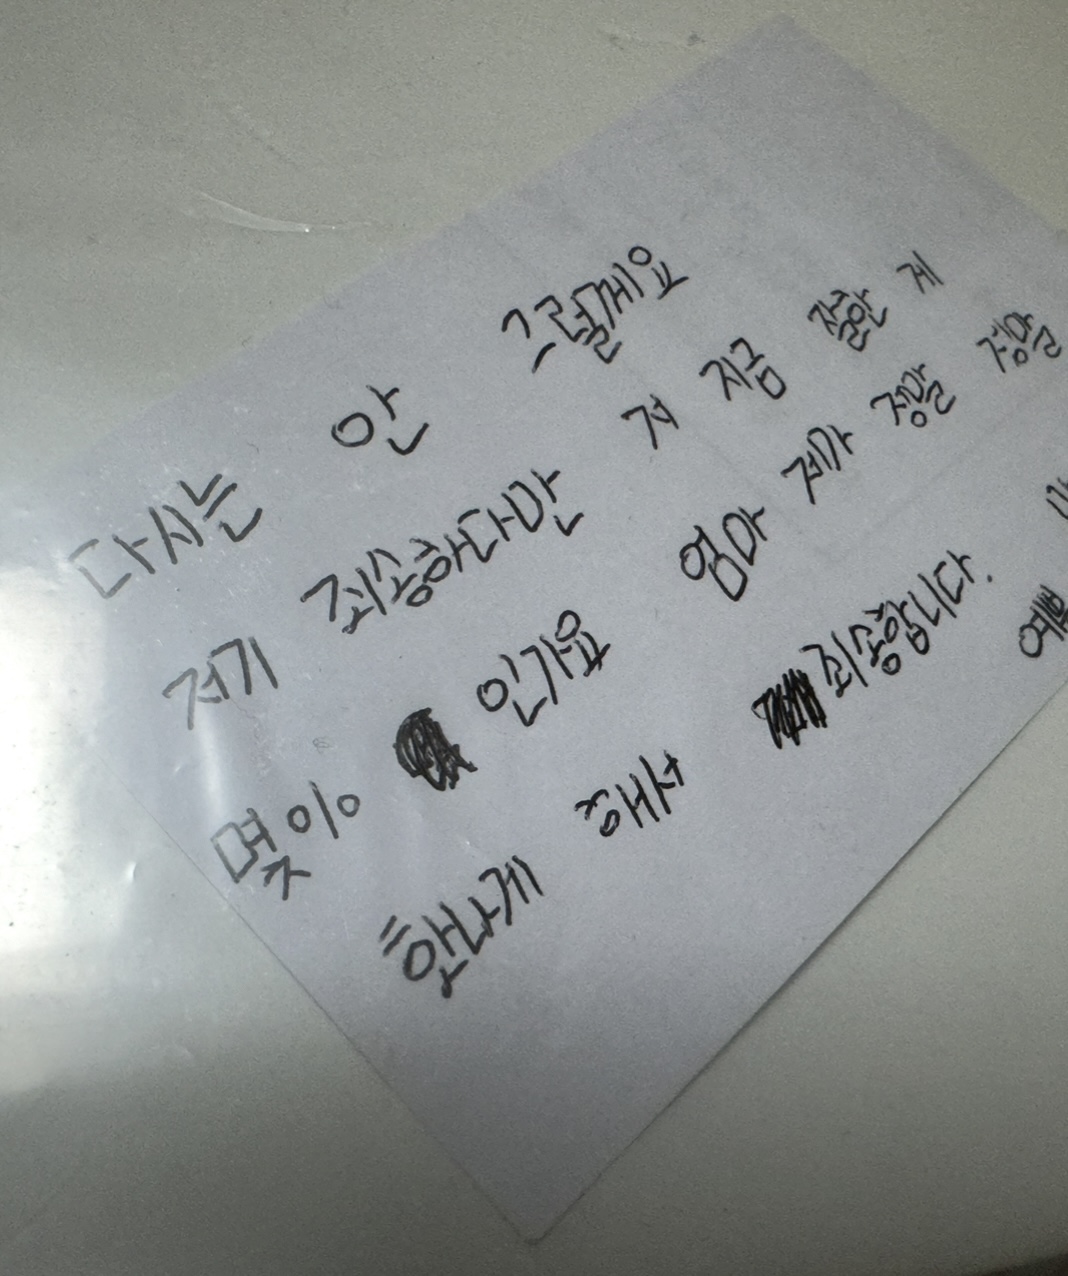 다시는 안 그럴게요
저기 죄송하다만 저 지금 잘한 게
몇이 인가요 엄마 저가 정말 정말
핫나게 해서 죄송합니다.